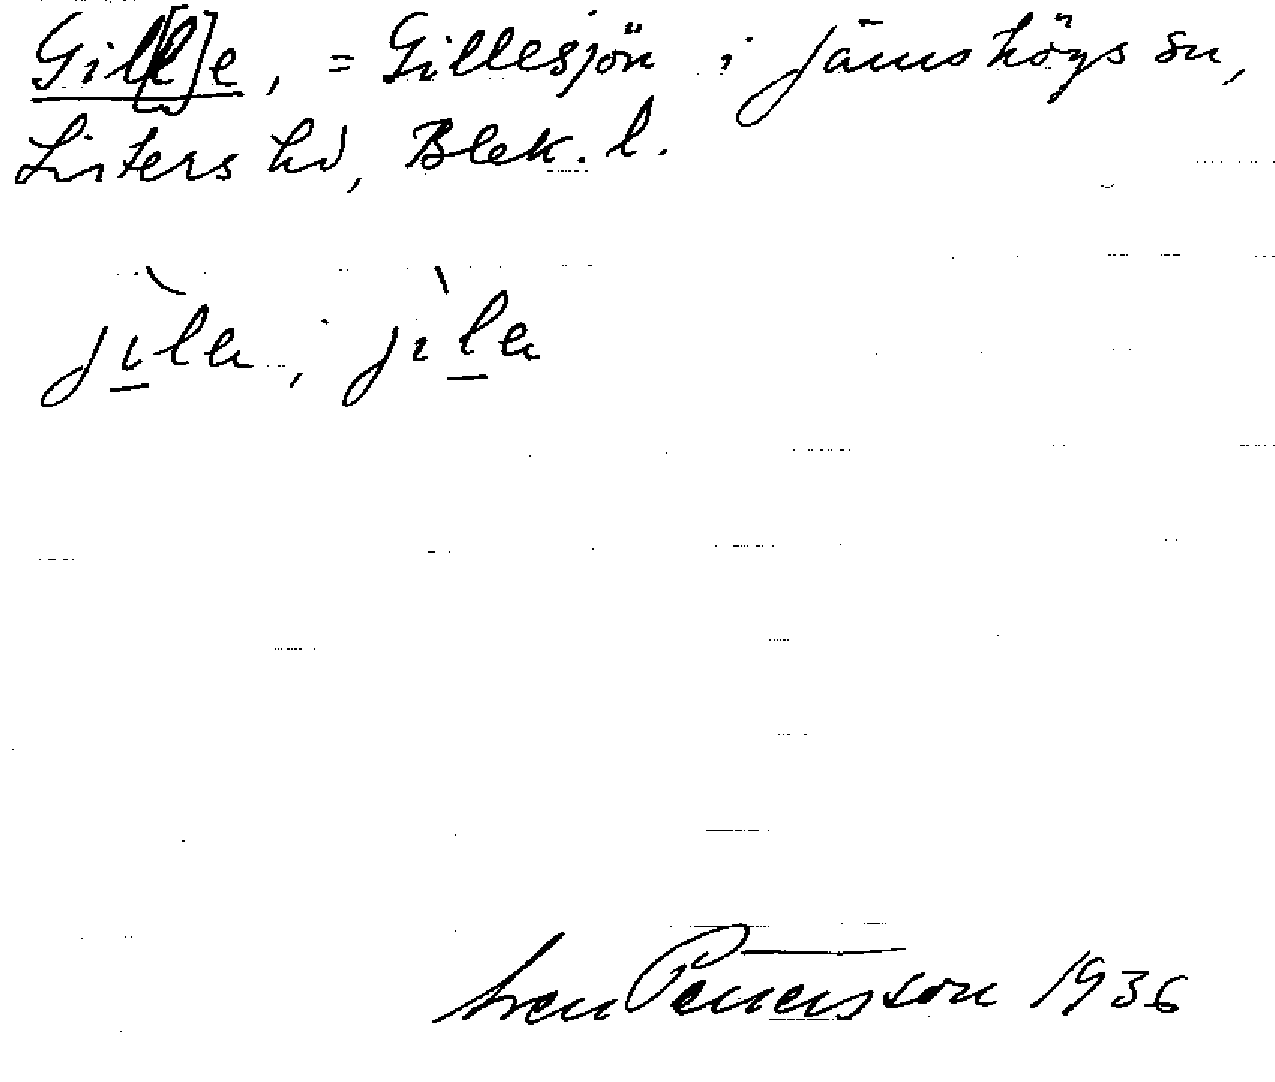 Gil[l]e, = Gillesjön i Jämshögs sn,
Listers hd, Blek. l.
jìla, jìla
Sven Petersson 1936